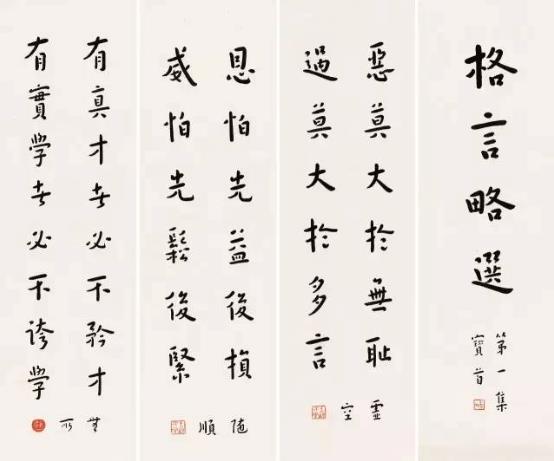 格言略選
第一集
寶首
惡莫大於無恥
過莫大於多言
恩怕先益後損
威怕先鬆後緊
隨
順
有真才者必不矜才
有實学者必不誇学
無
所